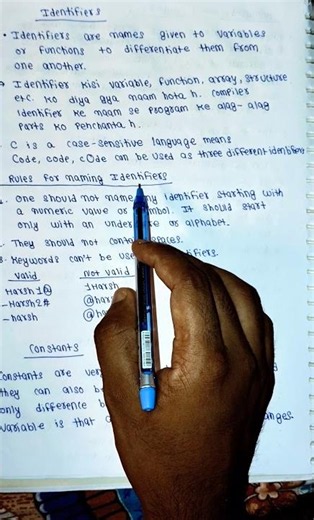 Identifiers
• Identifiers are names given to variables
or functions to differentiate them from
one another.
Identifier kisi variable, function, array, structure
etc. ko diya gya naam hota h. compiler
identifier ke naam se program ke alag-alag
parts ko Pehchanta h.
C is a case-sensitive language means
Code, code, cOde can be used as three different identifiers
Rules For naming Identifiers
One should not name any identifier starting with
a numeric value or symbol. It should start
only with an under or alphabet.
They should not contain spaces.
3. Keywords can't be use identifiers.
valid not valid
Harsh1@ 1Harsh
-Harsh2# @har
~harsh @ha
Constants
Constants are ver
they can also b
only difference b
variable is that c anges